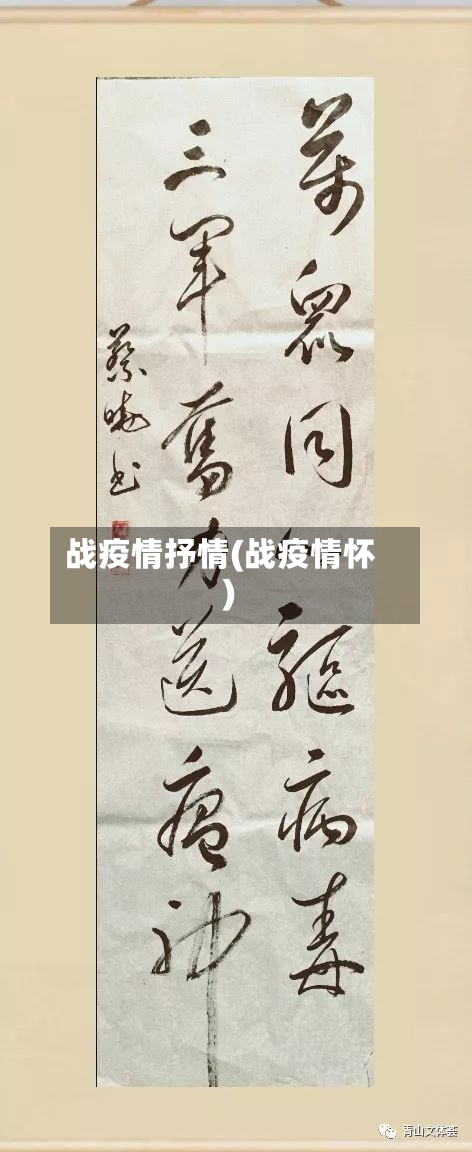 萬眾同驅病毒
三軍奮力送瘟神
蔡书
战疫情抒情(战疫情怀
)
青山文体荟